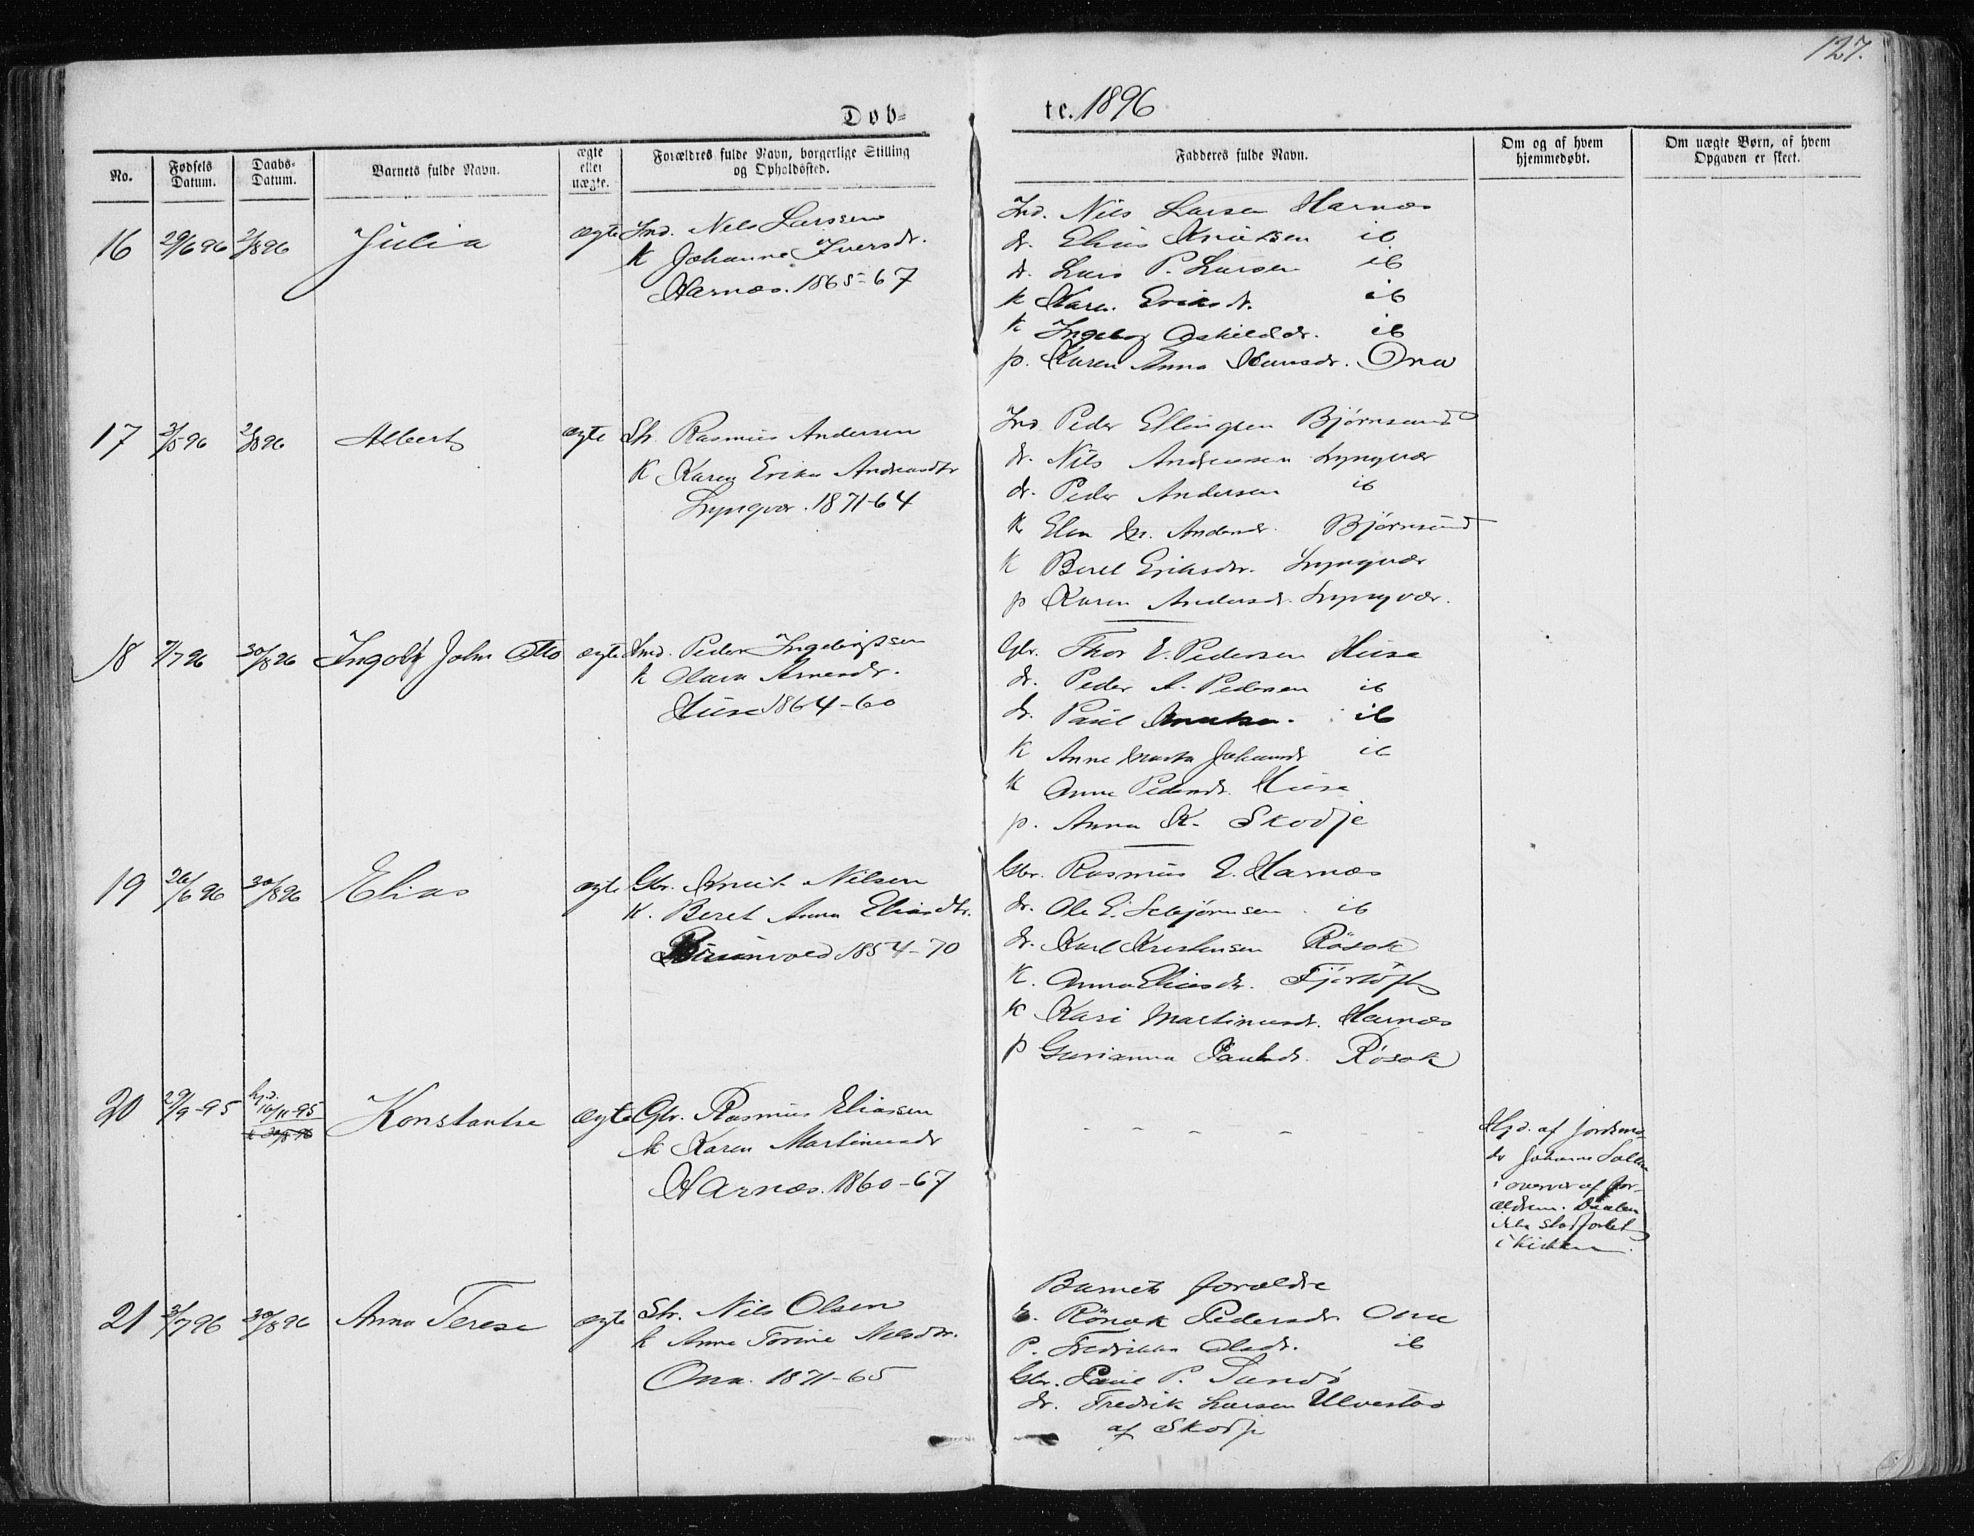 127.
Döb=
te. 1896
No.
Fødsels Datum.
Daabs- Datum.
Barnets fulde Navn.
ægte eller uægte.
Forældres fulde Navn, borgerlige Stilling og Opholdssted.
Fadderes fulde Navn.
Om og af hvem hjemmedøbt.
Om uægte Børn, af hvem Opgaven er skeet.
16 29/6 96 2/8 96 Julia ægte Ind. Nils Larssen
K Johanne Iversdr.
Harnæs. 1865-67
Ind. Nils Larsen Harnæs
dr. Elias Knutsen ib
dr. Lars P. Larsen ib
K Karen Eriksdr. ib
K Ingeborg Askildsdr. ib
p. Karen Anna Hansdr. Ona
17 3/5 96 2/8 96 Albert ægte Str. Rasmus Andersen
K Karen Erika Andreasdtr
Lyngvær. 1871-64
Ind. Peder Ellingsen Bjørnsund
dr. Nils Andreassen Lyngvær
dr. Peder Andersen ib
K Elen M. Andersdr. Bjørnsund
K Beret Eriksdr. Lyngvær
p Karen Andersdr. Lyngvær.
18 7/7 96 30/8 96 Ingolf John Otto ægte Ind. Peder Ingebrigtsen
K Olava Arnesdr.
Huse 1864-60
Gbr. Thor E. Pedersen Huse
dr. Peder A. Pedersen ib
dr. Paul ib
K Anne Marta Johannsdr ib
K Anne Pedersdr. Huse
p. Anna K. Skodje
19 26/6 96 30/8 96 Elias ægte Gbr. Knut Nilsen
K. Beret Anna Eliasdtr.
1854-70
Gbr. Rasmus E. Harnæs
dr. Ole E. Sebjørnsen ib
dr. Karl Kristensen Røsok
K. Anna Eliasdr. Fjørtoft
K Kari Martinusdr. Harnæs
p Gurianna Paulsdr. Røsok
20 29/9-95 hjd. 16/11-95 Konstanse ægte Gbr. Rasmus Eliassen
k 30/8 96
K Karen Martinusdr
Harnæs. 1860-67
Hjd. af Jordemo-
dr Johanne
i overvær af for-
ældrene. Daaben
ikke stadfæstet
i Kirken.
21 3/7 96 30/8 96 Anna Terese ægte Str. Nils Olsen
K Anne Torine Nilsdtr.
Ona. 1871-65
Barnets forældre
E. Rønok Pedersdr Ona
P. Fredrikke Olsdr. ib
Gbr. Paul P. Sandø
dr. Fredrik Larsen Ulvestad
af Skodje